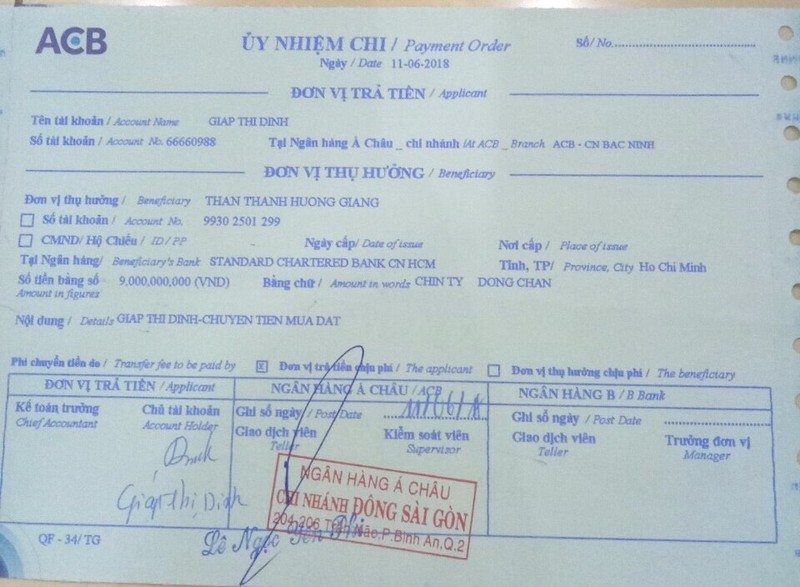 ACB
ỦY NHIỆM CHI / Payment Order
Số/ No.
Ngày / Date 11-06-2018
ĐƠN VỊ TRẢ TIỀN / Applicant
Tên tài khoản / Account Name GIAP THI DINH
Số tài khoản / Account No. 66660988 Tại Ngân hàng Á Châu _ chi nhánh /At ACB _ Branch ACB - CN BAC NINH
ĐƠN VỊ THỤ HƯỞNG / Beneficiary
Đơn vị thụ hưởng / Beneficiary THAN THANH HUONG GIANG
Số tài khoản / Account No. 9930 2501 299
CMND/ Hộ Chiếu / ID / PP Ngày cấp/ Date of issue Nơi cấp / Place of issue
Tại Ngân hàng/ Beneficiary's Bank STANDARD CHARTERED BANK CN HCM Tỉnh, TP/ Province, City Ho Chi Minh
Số tiền bằng số 9,000,000,000 (VND) Bằng chữ / Amount in words CHIN TY DONG CHAN
Amount in figures
Nội dung / Details GIAP THI DINH-CHUYEN TIEN MUA DAT
Phí chuyển tiền do / Transfer fee to be paid by x Đơn vị trả tiền chịu phí / The applicant Đơn vị thụ hưởng chịu phí / The beneficiary
ĐƠN VỊ TRẢ TIỀN / Applicant NGÂN HÀNG Á CHÂU / ACB NGÂN HÀNG B / B Bank
Kế toán trưởng Chủ tài khoản Ghi sổ ngày / Post Date Ghi sổ ngày / Post Date
Chief Accountant Account Holder Giao dịch viên Kiểm soát viên Giao dịch viên Trưởng đơn vị
Teller Supervisor Teller Manager
Giáp Thị Dinh
NGÂN HÀNG Á CHÂU
CHI NHÁNH ĐÔNG SÀI GÒN
204-206 Trần Não,P.Bình An,Q.2
QF - 34/ TG
Lê Ngọc Yến Phi